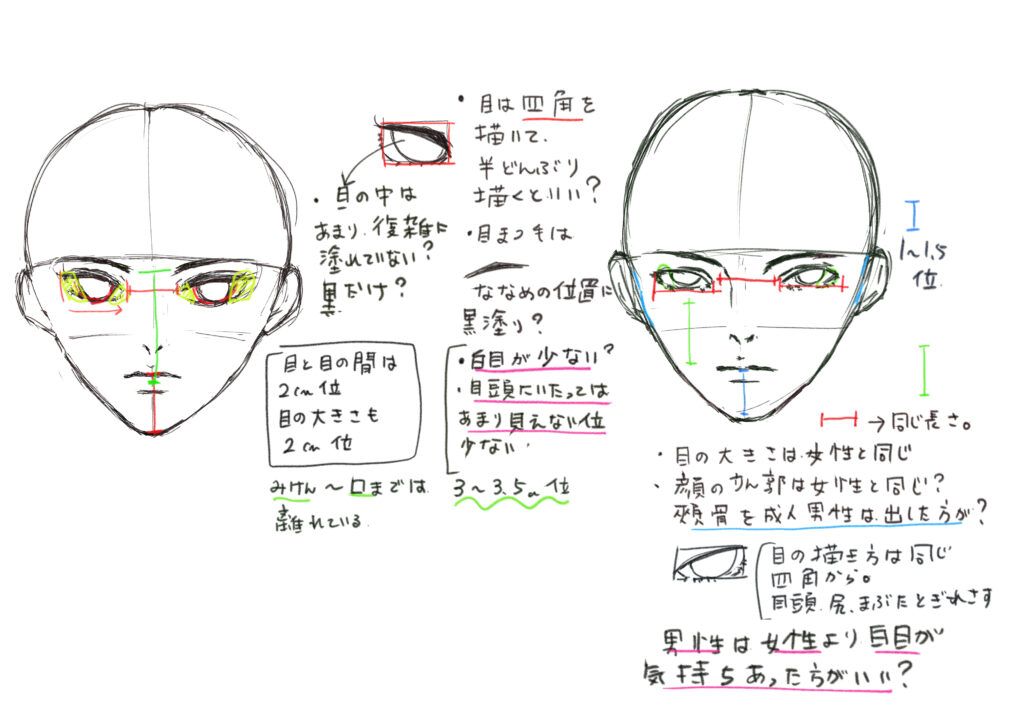 ・目は四角を
描いて、
半どんぶり
描くといい?
・目の中は
あまり、復雑に
塗れていない?
黒だけ?
・目まつ毛は
ななめの位置に
黒塗り?
・白目が少ない?
・目頭にいたっては
あまり見えない位
少ない
目と目の間は
2cm位
目の大きさも
2cm位
みけん〜口までは
離れている
3〜3.5cm位
1〜1.5
位
→同じ長さ。
・目の大きさは女性と同じ
・顔のりん郭は女性と同じ?
頰骨を成人男性は出した方が?
目の描き方は同じ
四角から。
目頭、尻、まぶたとぎれさす
男性は女性より白目が
気持ちあった方がいい?